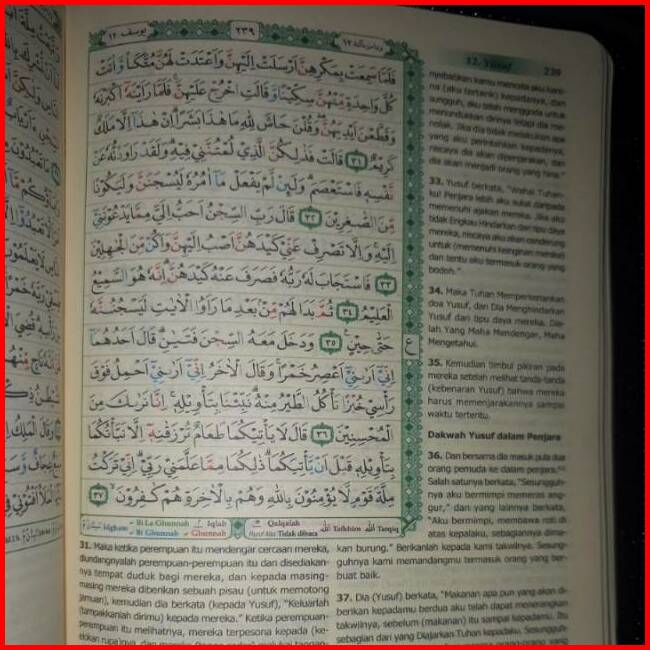 يوسف ١٢
٢٣٩
وما من دآبة ١٢
فَلَمَّا سَمِعَتْ بِمَكْرِهِنَّ أَرْسَلَتْ إِلَيْهِنَّ وَأَعْتَدَتْ لَهُنَّ مُتَّكَـًٔا وَّاٰتَتْ
كُلَّ وَاحِدَةٍ مِّنْهُنَّ سِكِّيْنًا وَّقَالَتِ اخْرُجْ عَلَيْهِنَّ ۚ فَلَمَّا رَاَيْنَهٗٓ اَكْبَرْنَهٗ
وَقَطَّعْنَ اَيْدِيَهُنَّ ۖ وَقُلْنَ حَاشَ لِلّٰهِ مَا هٰذَا بَشَرًا ۗ اِنْ هٰذَآ اِلَّا مَلَكٌ
كَرِيْمٌ ٣١ قَالَتْ فَذٰلِكُنَّ الَّذِيْ لُمْتُنَّنِيْ فِيْهِ ۗ وَلَقَدْ رَاوَدْتُّهٗ عَنْ
نَّفْسِهٖ فَاسْتَعْصَمَ ۗ وَلَىِٕنْ لَّمْ يَفْعَلْ مَآ اٰمُرُهٗ لَيُسْجَنَنَّ وَلَيَكُوْنًا
مِّنَ الصّٰغِرِيْنَ ٣٢ قَالَ رَبِّ السِّجْنُ اَحَبُّ اِلَيَّ مِمَّا يَدْعُوْنَنِيْٓ
اِلَيْهِ ۚ وَاِلَّا تَصْرِفْ عَنِّيْ كَيْدَهُنَّ اَصْبُ اِلَيْهِنَّ وَاَكُنْ مِّنَ الْجٰهِلِيْنَ
٣٣ فَاسْتَجَابَ لَهٗ رَبُّهٗ فَصَرَفَ عَنْهُ كَيْدَهُنَّ ۗ اِنَّهٗ هُوَ السَّمِيْعُ
الْعَلِيْمُ ٣٤ ثُمَّ بَدَا لَهُمْ مِّنْۢ بَعْدِ مَا رَاَوُا الْاٰيٰتِ لَيَسْجُنُنَّهٗ
حَتّٰى حِيْنٍ ٣٥ وَدَخَلَ مَعَهُ السِّجْنَ فَتَيٰنِ ۗ قَالَ اَحَدُهُمَآ
اِنِّيْٓ اَرٰىنِيْٓ اَعْصِرُ خَمْرًا ۚ وَقَالَ الْاٰخَرُ اِنِّيْٓ اَرٰىنِيْٓ اَحْمِلُ فَوْقَ
رَأْسِيْ خُبْزًا تَأْكُلُ الطَّيْرُ مِنْهُ ۗ نَبِّئْنَا بِتَأْوِيْلِهٖ ۚ اِنَّا نَرٰىكَ مِنَ
الْمُحْسِنِيْنَ ٣٦ قَالَ لَا يَأْتِيْكُمَا طَعَامٌ تُرْزَقٰنِهٖٓ اِلَّا نَبَّأْتُكُمَا
بِتَأْوِيْلِهٖ قَبْلَ اَنْ يَّأْتِيَكُمَا ۗ ذٰلِكُمَا مِمَّا عَلَّمَنِيْ رَبِّيْ ۗ اِنِّيْ تَرَكْتُ
مِلَّةَ قَوْمٍ لَّا يُؤْمِنُوْنَ بِاللّٰهِ وَهُمْ بِالْاٰخِرَةِ هُمْ كٰفِرُوْنَ ٣٧
ع
Idgham Bi La Ghunnah Bi Ghunnah Iqlab Ghunnah Qalqalah Tidak dibaca Tafkhim Tarqiq
31. Maka ketika perempuan itu mendengar cercaan mereka,
diundangnyalah perempuan-perempuan itu dan disediakan-
nya tempat duduk bagi mereka, dan kepada masing-
masing mereka diberikan sebuah pisau (untuk memotong
jamuan), kemudian dia berkata (kepada Yusuf), "Keluarlah
(tampakkanlah dirimu) kepada mereka." Ketika perempuan-
perempuan itu melihatnya, mereka terpesona kepada (ke-
12. Yusuf 239
sungguh, aku telah menggoda untuk
menundukkan dirinya tetapi dia me-
nolak. Jika dia tidak melakukan apa
yang aku perintahkan kepadanya,
niscaya dia akan dipenjarakan, dan
dia akan menjadi orang yang hina."
33. Yusuf berkata, "Wahai Tuhan-
ku! Penjara lebih aku sukai daripada
memenuhi ajakan mereka. Jika aku
tidak Engkau hindarkan dari tipu daya
mereka, niscaya aku akan cenderung
untuk (memenuhi keinginan mereka)
dan tentu aku termasuk orang yang
bodoh."
34. Maka Tuhan Memperkenankan
doa Yusuf, dan Dia Menghindarkan
Yusuf dari tipu daya mereka. Dia-
lah Yang Maha Mendengar, Maha
Mengetahui.
35. Kemudian timbul pikiran pada
mereka setelah melihat tanda-tanda
(kebenaran Yusuf) bahwa mereka
harus memenjarakannya sampai
waktu tertentu.
Dakwah Yusuf dalam Penjara
36. Dan bersama dia masuk pula dua
orang pemuda ke dalam penjara.
Salah satunya berkata, "Sesungguh-
nya aku bermimpi memeras ang-
gur," dan yang lainnya berkata,
"Aku bermimpi, membawa roti di
atas kepalaku, sebagiannya dima-
kan burung." Berikanlah kepada kami takwilnya. Sesung-
guhnya kami memandangmu termasuk orang yang ber-
buat baik.
37. Dia (Yusuf) berkata, "Makanan apa pun yang akan di-
berikan kepadamu berdua aku telah dapat menerangkan
takwilnya, sebelum (makanan) itu sampai kepadamu. Itu
sebagian dari yang Diajarkan Tuhan kepadaku. Sesungguh